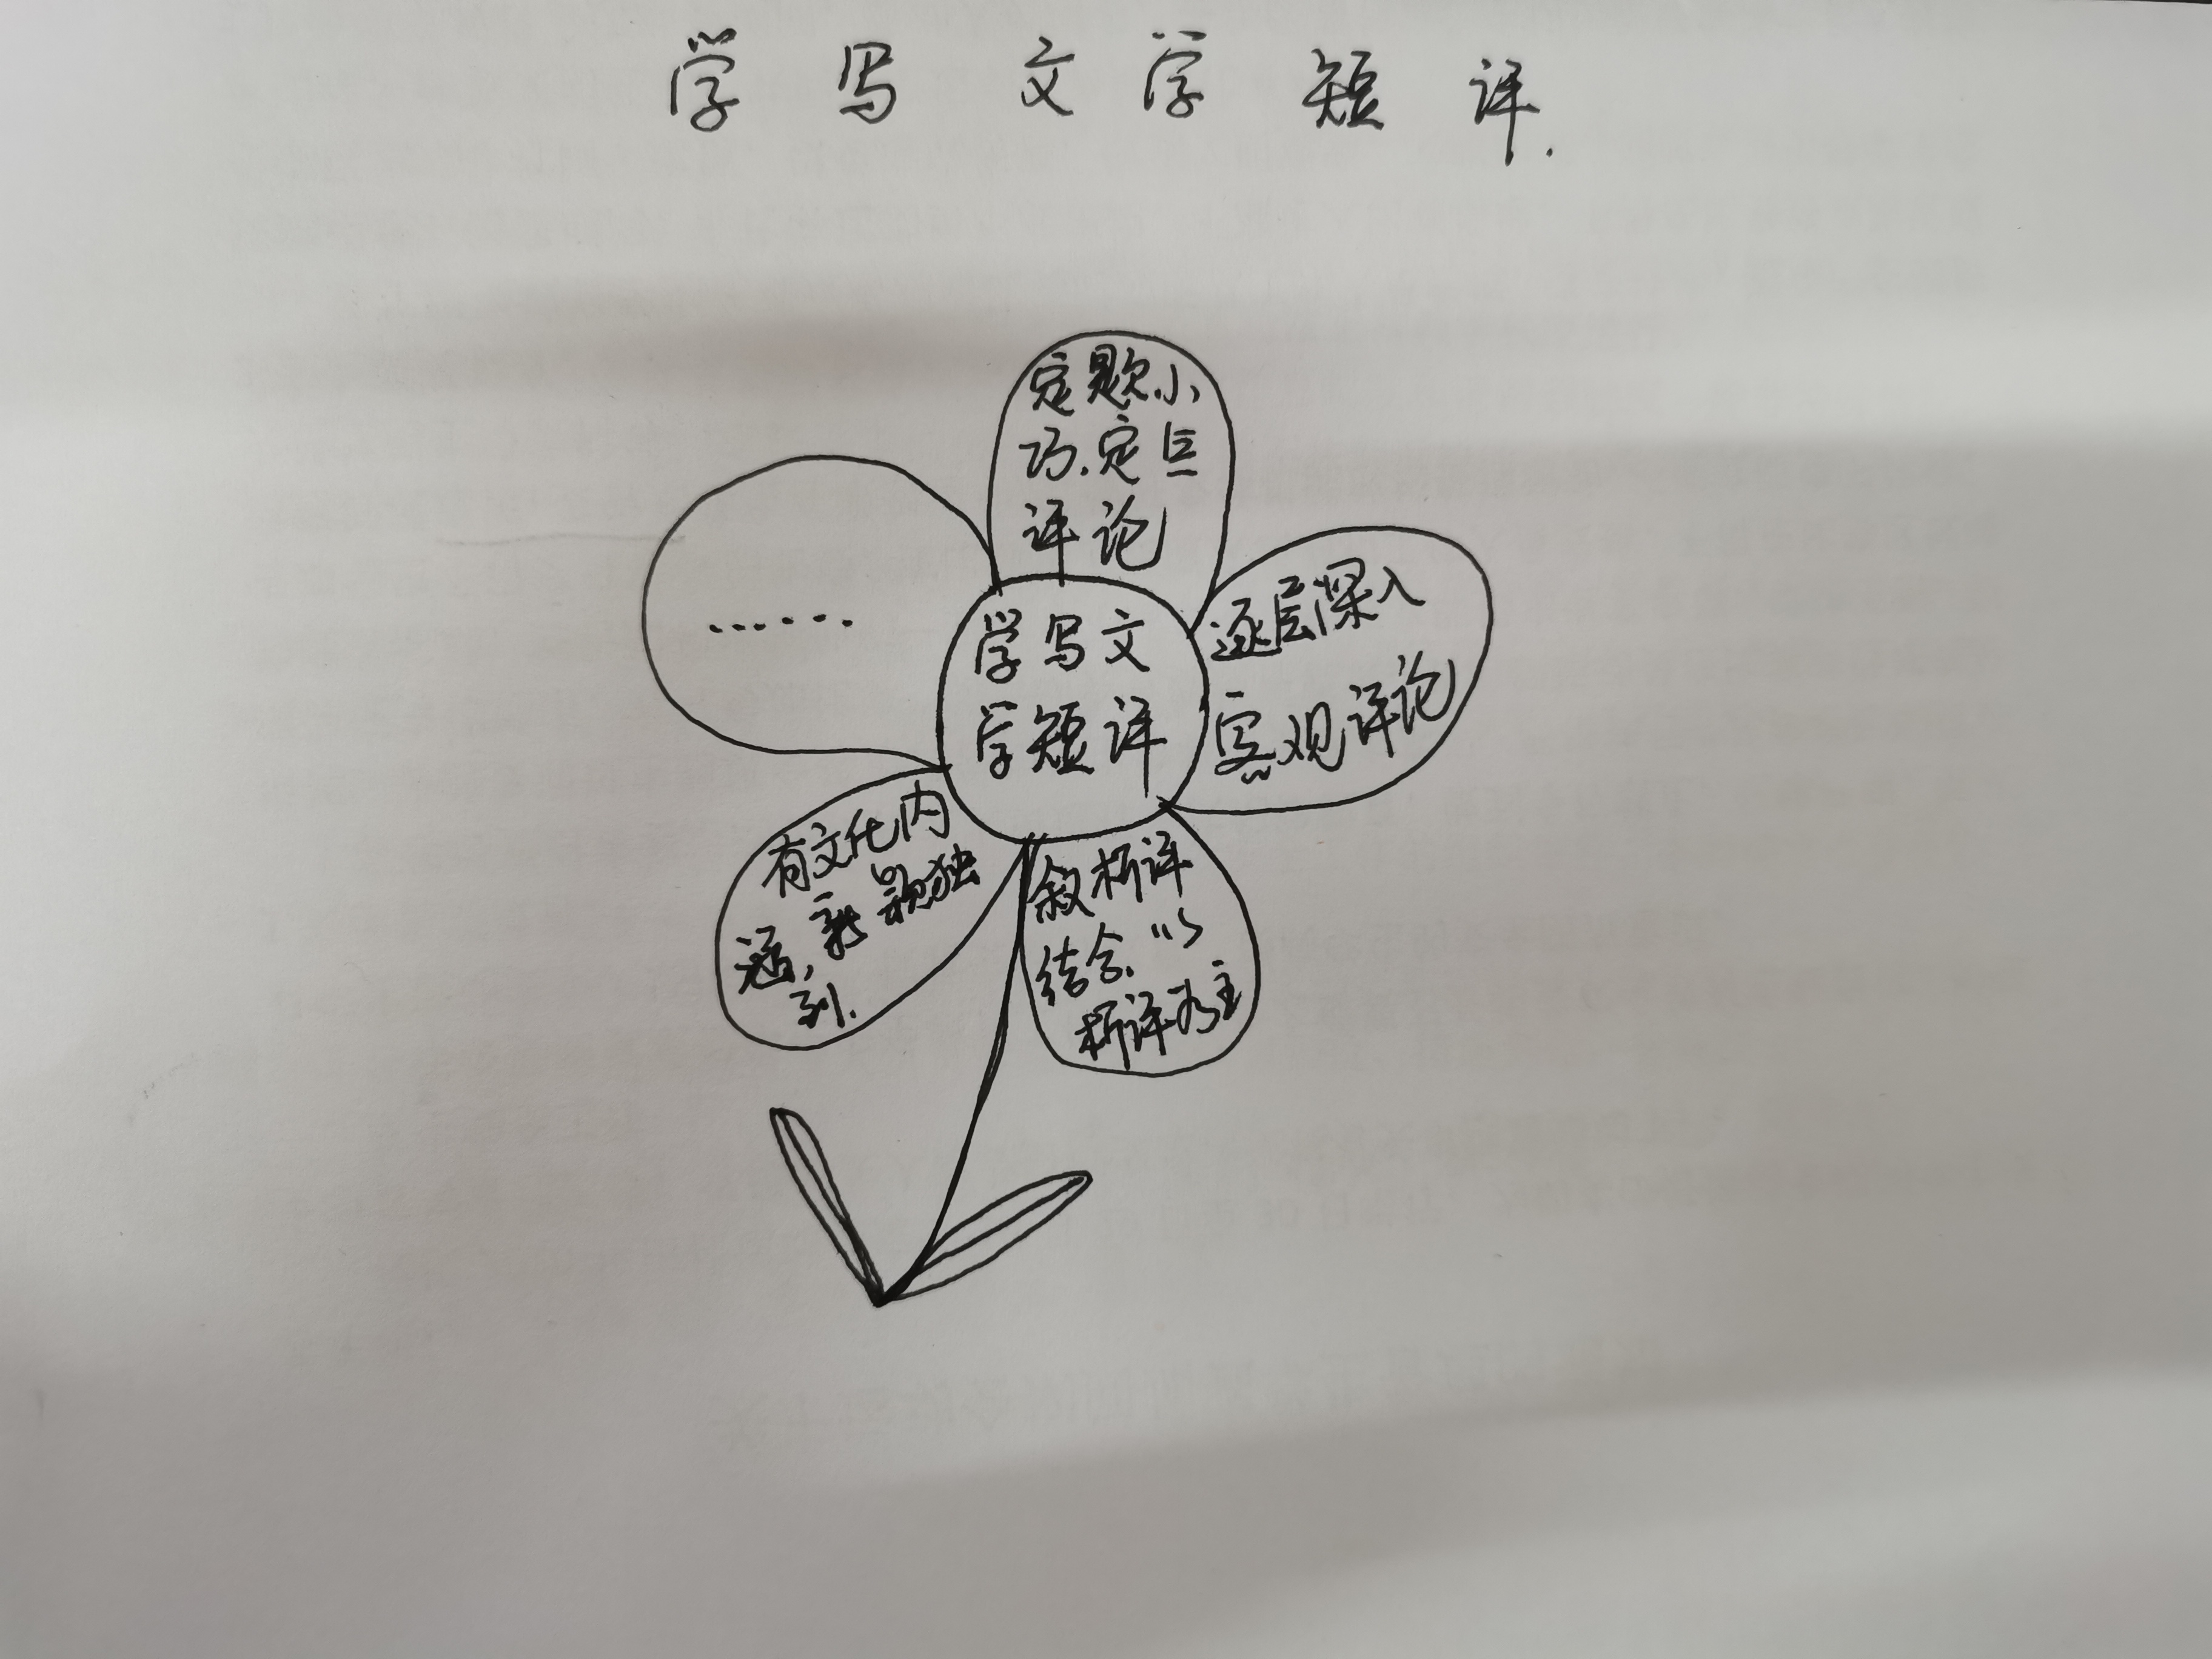 学写文学短评.
定题小
巧.定点
评论
逐层深入
客观评论
叙析评
结合.以
析评为主
有文化内
涵,新颖独
到.
......
学写文
学短评